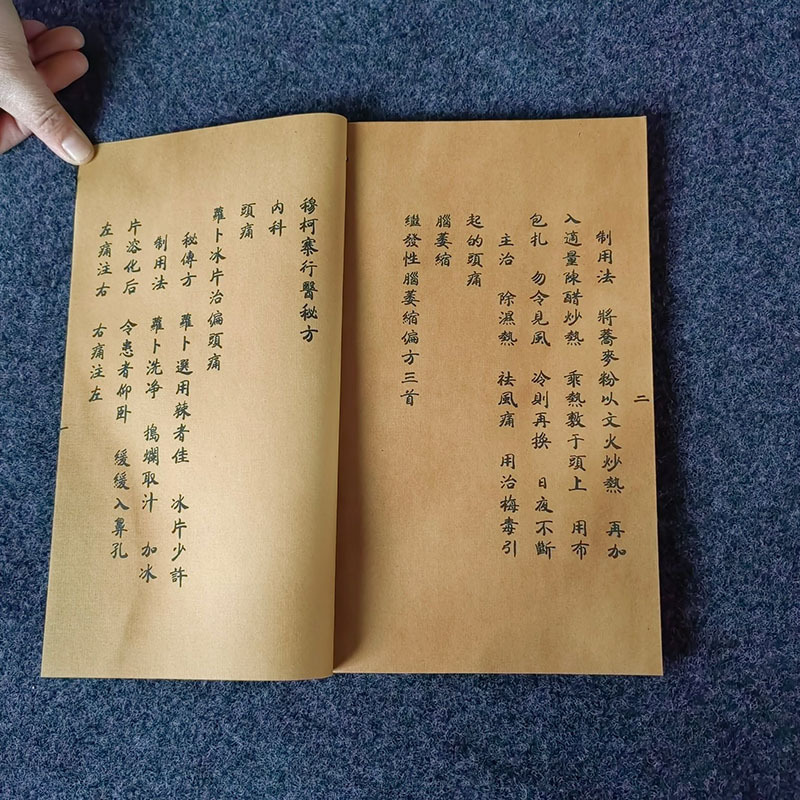 穆柯寨行醫秘方
內科
頭痛
蘿卜冰片治偏頭痛
秘傳方 蘿卜選用辣者佳 冰片少許
制用法 蘿卜洗净 搗爛取汁 加冰
片溶化后 令患者仰卧 緩緩入鼻孔
左痛注右 右痛注左
一
二
制用法 將蕎麥粉以文火炒熱 再加
入適量陳醋炒熱 乘熱敷于頭上 用布
包扎 勿令見風 冷則再换 日夜不斷
主治 除濕熱 祛風痛 用治梅毒引
起的頭痛
腦萎縮
繼發性腦萎縮偏方三首